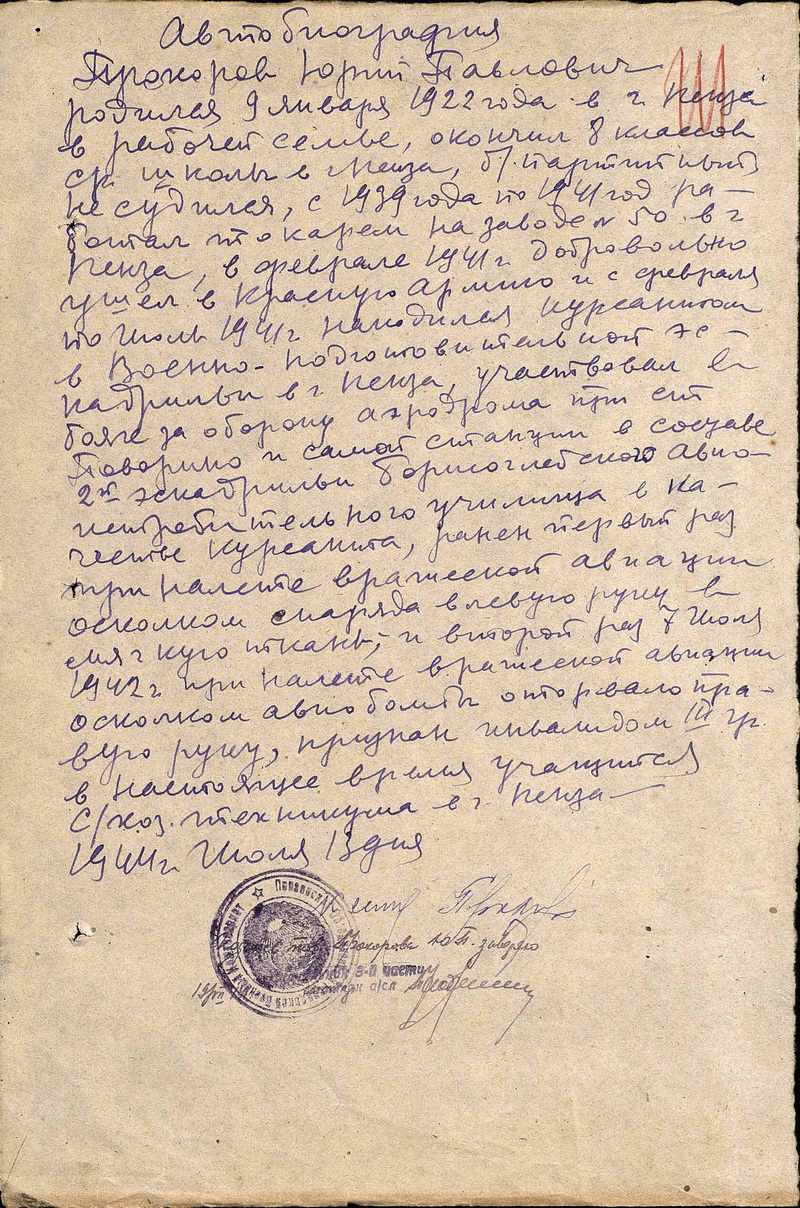 Автобиография
Прохоров Юрий Павлович
родился 9 января 1922 года в г. Пенза
в рабочей семье, окончил 8 классов
ср. школы в г. Пенза, б/партийный
не судился, с 1939 года по 1941 год ра-
ботал токарем на заводе № 50 в г.
Пенза, в феврале 1941 г. добровольно
ушел в Красную армию и с февраля
по Июль 1941 г находился курсантом
в Военно-подготовительной эс-
кадрильи в г. Пенза, участвовал в
боях за оборону аэродрома при ст
Поворино и самой станции в составе
2й эскадрильи Борисоглебского Авио-
истребительного училища в ка-
честве курсанта, ранен первый раз
при налете вражеской авиации
осколком снаряда в левую руку в
мягкую ткань, и второй раз 7 Июля
1942 г. при налете вражеской авиации
осколком авиобомбы оторвало пра-
вую руку, признан инвалидом III гр.
в настоящее время учащийся
С/хоз. техникума в г. Пенза
1944 г. Июля 13 дня
Прохоров
т. Прохорова Ю.П. заверяю
3-й части